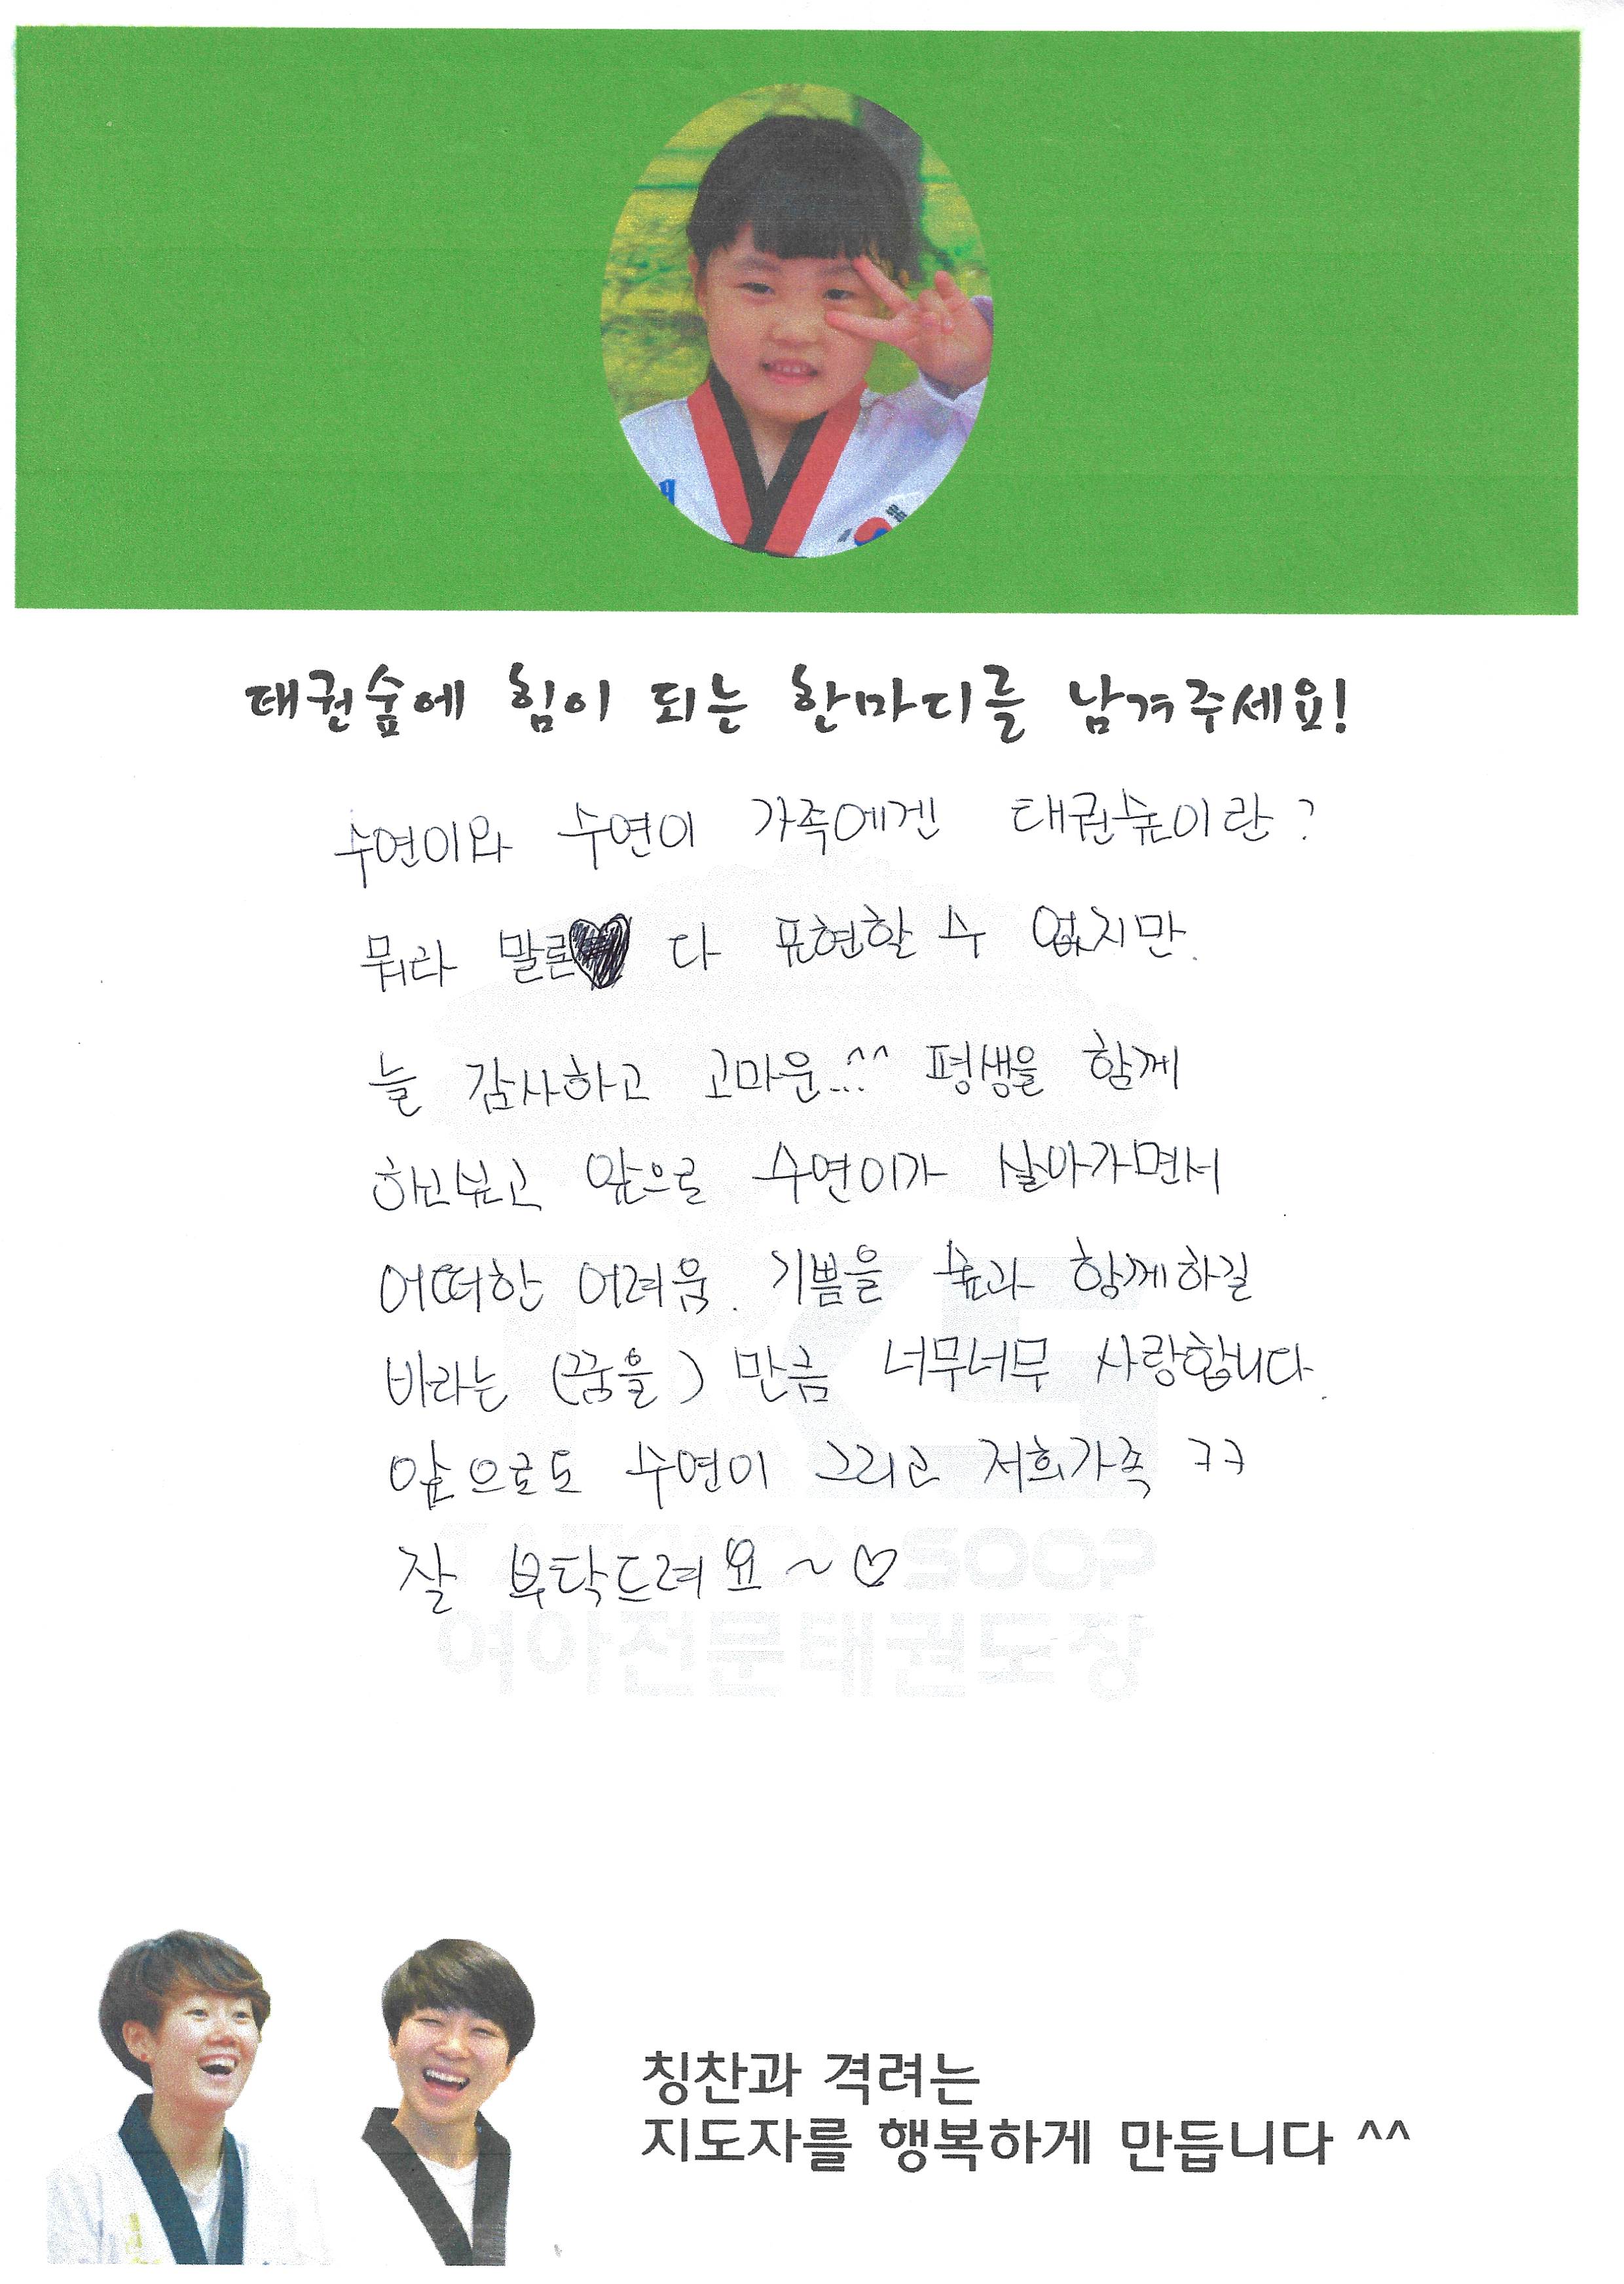 태권숲에 힘이 되는 한마디를 남겨주세요!
수연이와 수연이 가족에겐 태권숲이란?
뭐라 말론♥ 다 표현할 수 없지만.
늘 감사하고 고마운...^^ 평생을 함께
하고싶고 앞으로 수연이가 살아가면서
어떠한 어려움. 기쁨을 숲과 함께하길
바라는 (꿈을) 만큼 너무너무 사랑합니다.
앞으로도 수연이 그리고 저희가족 ㅋㅋ
잘 부탁드려요~♡
TKS
TAEKWON SOOP
여아전문태권도장
칭찬과 격려는
지도자를 행복하게 만듭니다 ^^